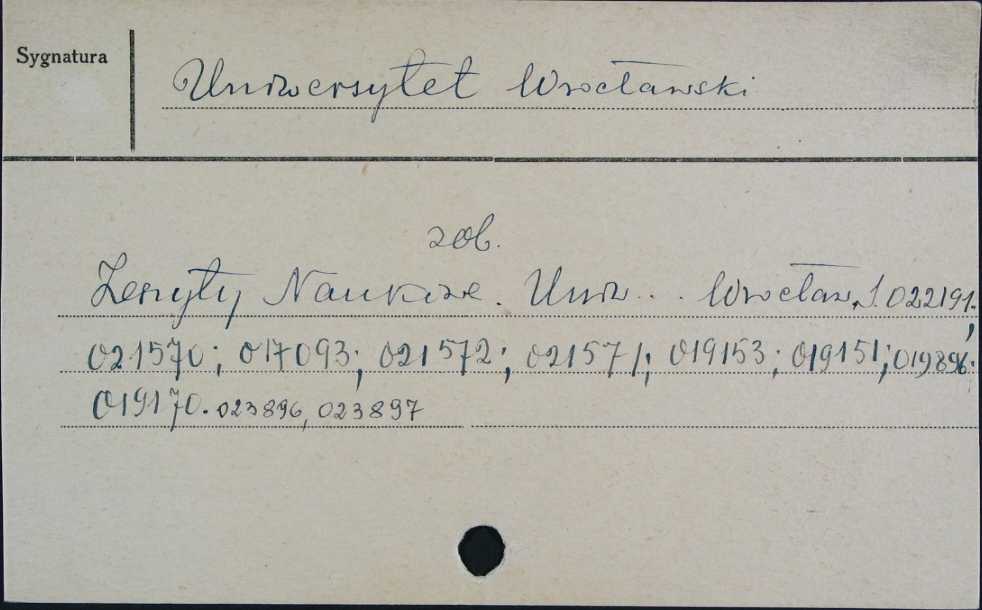 Sygnatura
Uniwersytet Wrocławski
zob.
Zeszyty Naukowe. Uniw... Wrocław. S. 022191;
021570; 017093; 021572; 021571; 019153; 019151; 019896;
019170. 023896, 023897